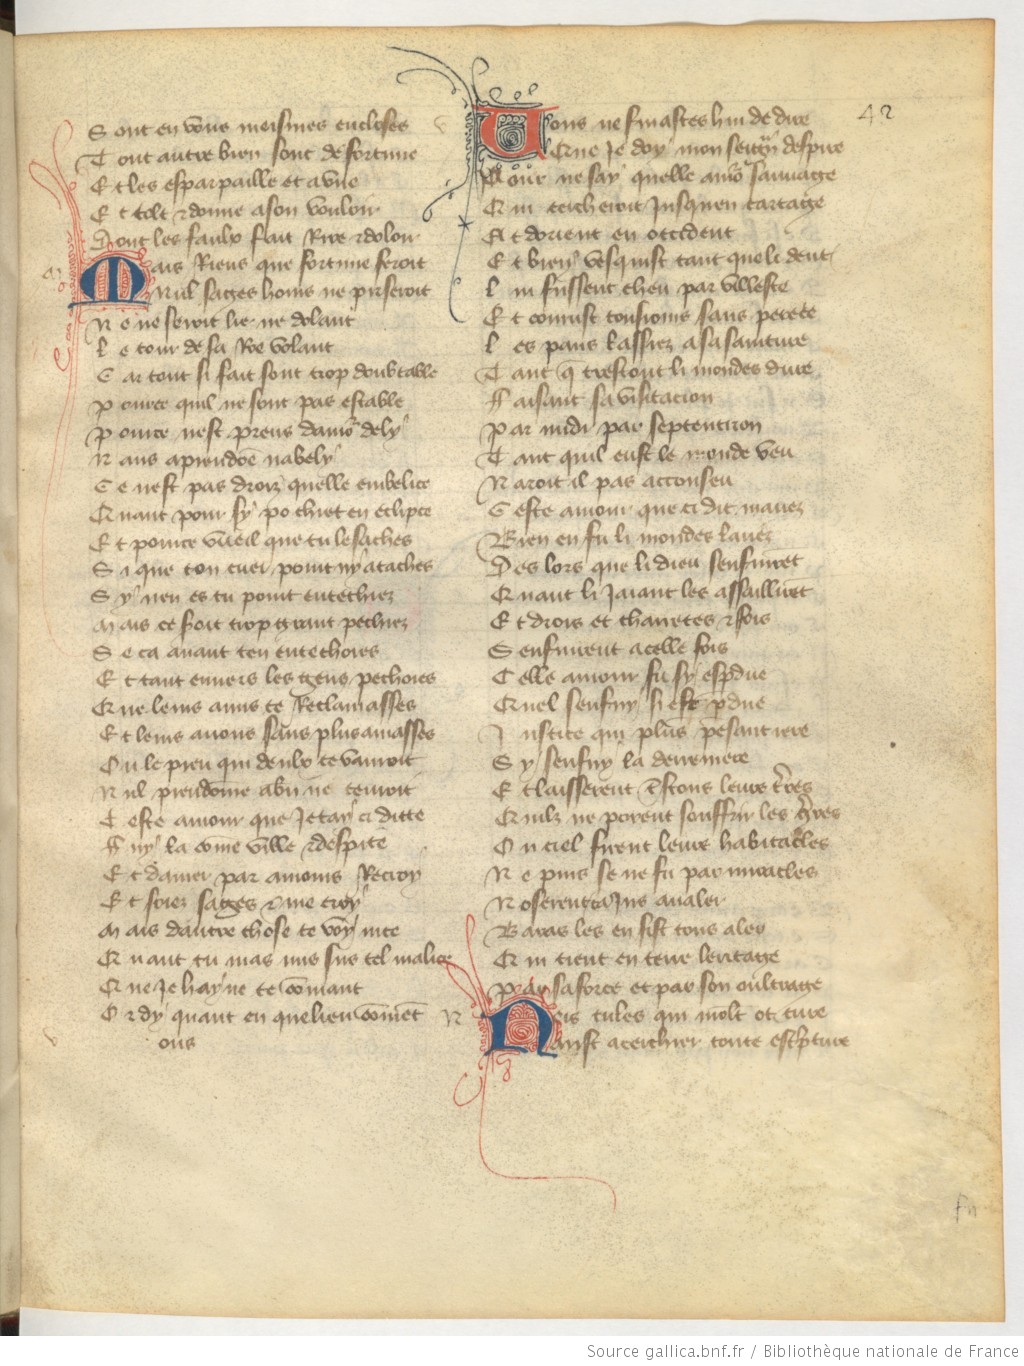 S ont en vous meismes encloses
T out autre bien sont de fortune
E t les esparpaille et avne
E t tolt & donne a son vouloir
D ont les faulx fait Rire & doloir
M ais Riens que fortune feroit
Nul sages homs ne priseroit
N e ne seroit lie ne dolant
L e tour de sa Roe volant
C ar tout si fait sont trop doubtable
P ource quil ne sont pas estable
P ource nest preus damor dely
N ans a preudõe nabely
C e nest pas droiz quelle embelice
Quant pour sy po chiet en eclipce
E t pource vueil que tu le saches
S i que ton cuer point ny ataches
S y nen es tu point entechiez
M ais ce seroit trop grant pechiez
S e ca auant ten entechoies
E t tant enuers les gens pechoies
Que leurs amis te Reclamasses
E t leurs auoirs sans plus amasses
O u le preu qui deulx te vanroit
N ul preudõme a bñ ne tenroit
C este amour que Je tay ci ditte
F uy la cõme ville & despite
E t damer par amours Recroy
E t soiez sages & me croy
M ais dautre chose te voy nice
Q uant tu mas mis sus tel malice
Que Je hayne te cõmant
O r dy quant en quel lieu cõmẽt
ous
V ous ne finastes hui de dire
Que Je doy mon seigñ despire
Pour ne say quelle amor sauuage
Qui cercheroit Jusquen cartage
E t dorient en occident
E t bien vesquist tant que li dent
L ui fussent cheu par villesce
E t courust tousiours sans perece
L es pans lassiez a sa sainture
T ant q̃ trestout li mondes dure
F aisant sa visitacion
P ar midi par septentrion
T ant quil eust le monde veu
N aroit il pas acconseu
C este amour que ci dit mauez
Bien en fu li mondes lauez
D es lors que li dieu senfuirẽt
Q uant li Jaiant les assaillirẽt
E t drois et chaastetes & fois
S enfuirent a celle fois
C elle amour fu sy espdue
Quel senfuy si est pdue
J ustice qui plus pesant iere
S y senfuy la derreniere
E t laisserent
Quilz ne porent souffrir les
O u ciel firent leurs habitacles
N e puis se ne fu par miracles
N oserent ca Jus aualer
Baras les en fist tous aler
Qui tient en terre leritage
Par sa force et par son oultrage
N eis tules qui molt ot cure
Mist a cerchier toute escripture
42